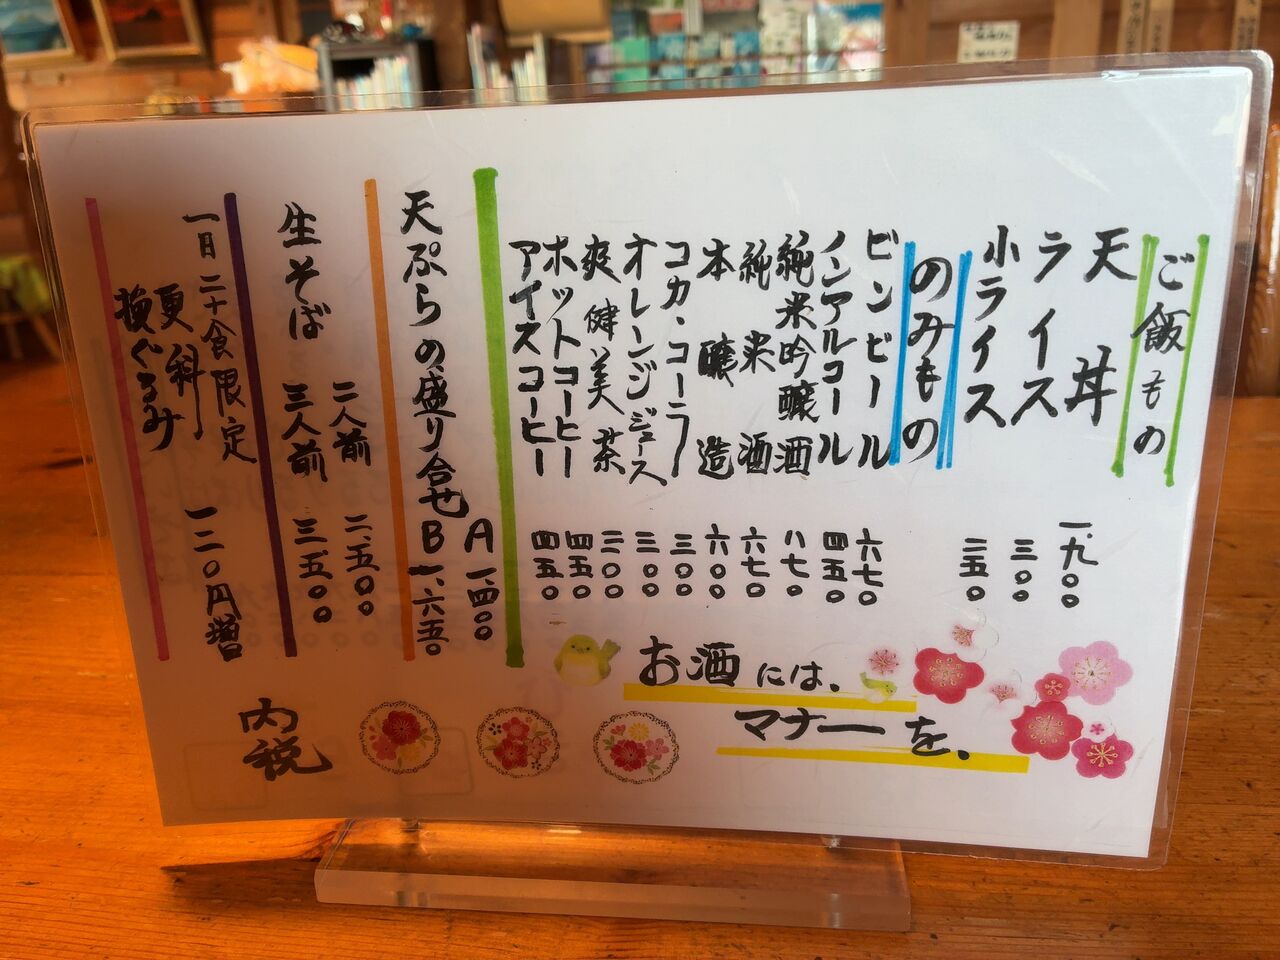 ご飯もの
天丼 一、九〇〇
ライス 三〇〇
小ライス 二五〇
のみもの
ビンビール 六七〇
ノンアルコール 四五〇
純米吟醸酒 八七〇
純米酒 六七〇
本醸造 六〇〇
コカ・コーラ 三〇〇
オレンジジュース 三〇〇
爽健美茶 二〇〇
ホットコーヒー 四五〇
アイスコーヒー 四五〇
天ぷらの盛り合せ A 一、四〇〇
B 一、六五〇
生そば 二人前 二、五〇〇
三人前 三、五〇〇
一日二十食限定
更科 一二〇円増
換ぐるみ
お酒には、
マナーを、
内税